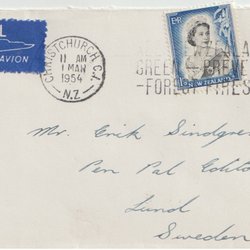 L
AVION
CHRISTCHURCH C.1.
11 AM
1 MAR
1954
N.Z
E R
NEW ZEALAND
GREEN - PREVENT
-FOREST FIRES
Mr. Erik Sindgre
Pen Pal Editor
Lund
Sweden